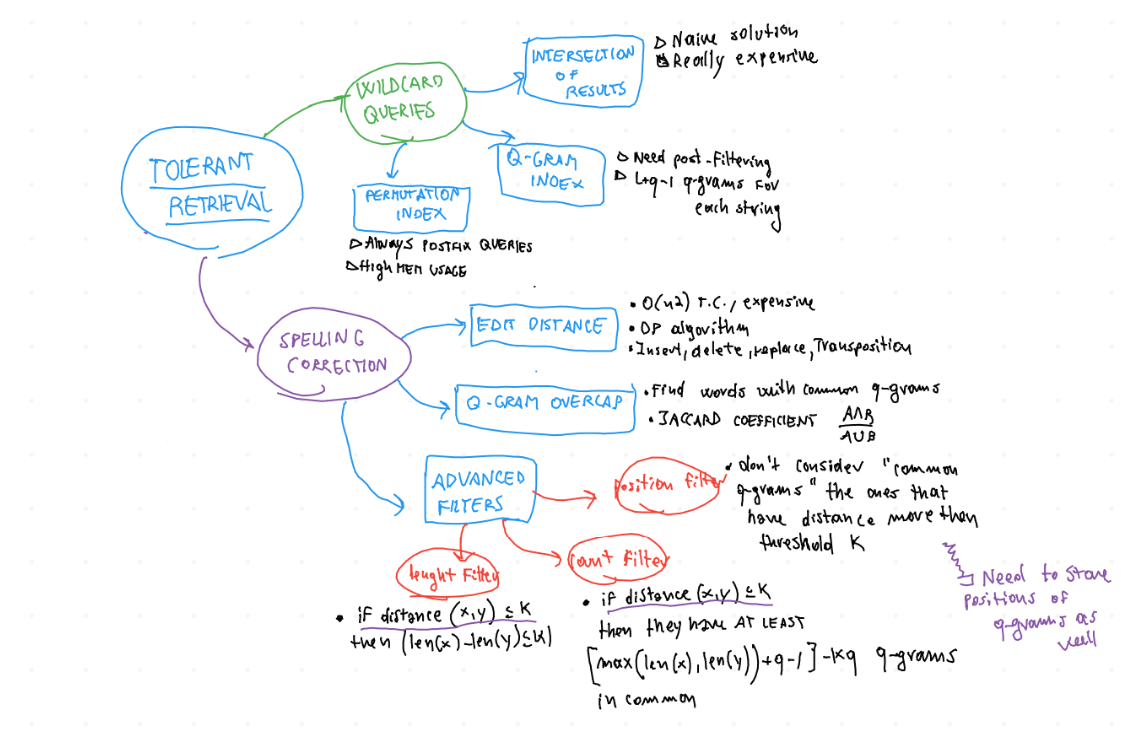 TOLERANT
RETRIEVAL
WILDCARD
QUERIES
INTERSECTION
OF
RESULTS
▷ Naive solution
▷ Really expensive
Q-GRAM
INDEX
▷ Need post-filtering
▷ L+q-1 q-grams for
each string
PERMUTATION
INDEX
▷ Always POSTFIX QUERIES
▷ High MEM USAGE
SPELLING
CORRECTION
EDIT DISTANCE
• O(n2) T.C., expensive
• DP algorithm
• Insert, delete, replace, Transposition
Q-GRAM OVERLAP
• Find words with common q-grams
• JACCARD COEFFICIENT A∩B
A∪B
ADVANCED
FILTERS
position filter
• don't consider "common
q-grams" the ones that
have distance more than
threshold K
Need to store
positions of
q-grams as
well
lenght Filter
• if distance (x,y) ≤ K
then |len(x)-len(y)≤K|
Count Filter
• if distance (x,y) ≤ K
then they have AT LEAST
[max(len(x), len(y))+q-1]-Kq q-grams
in common